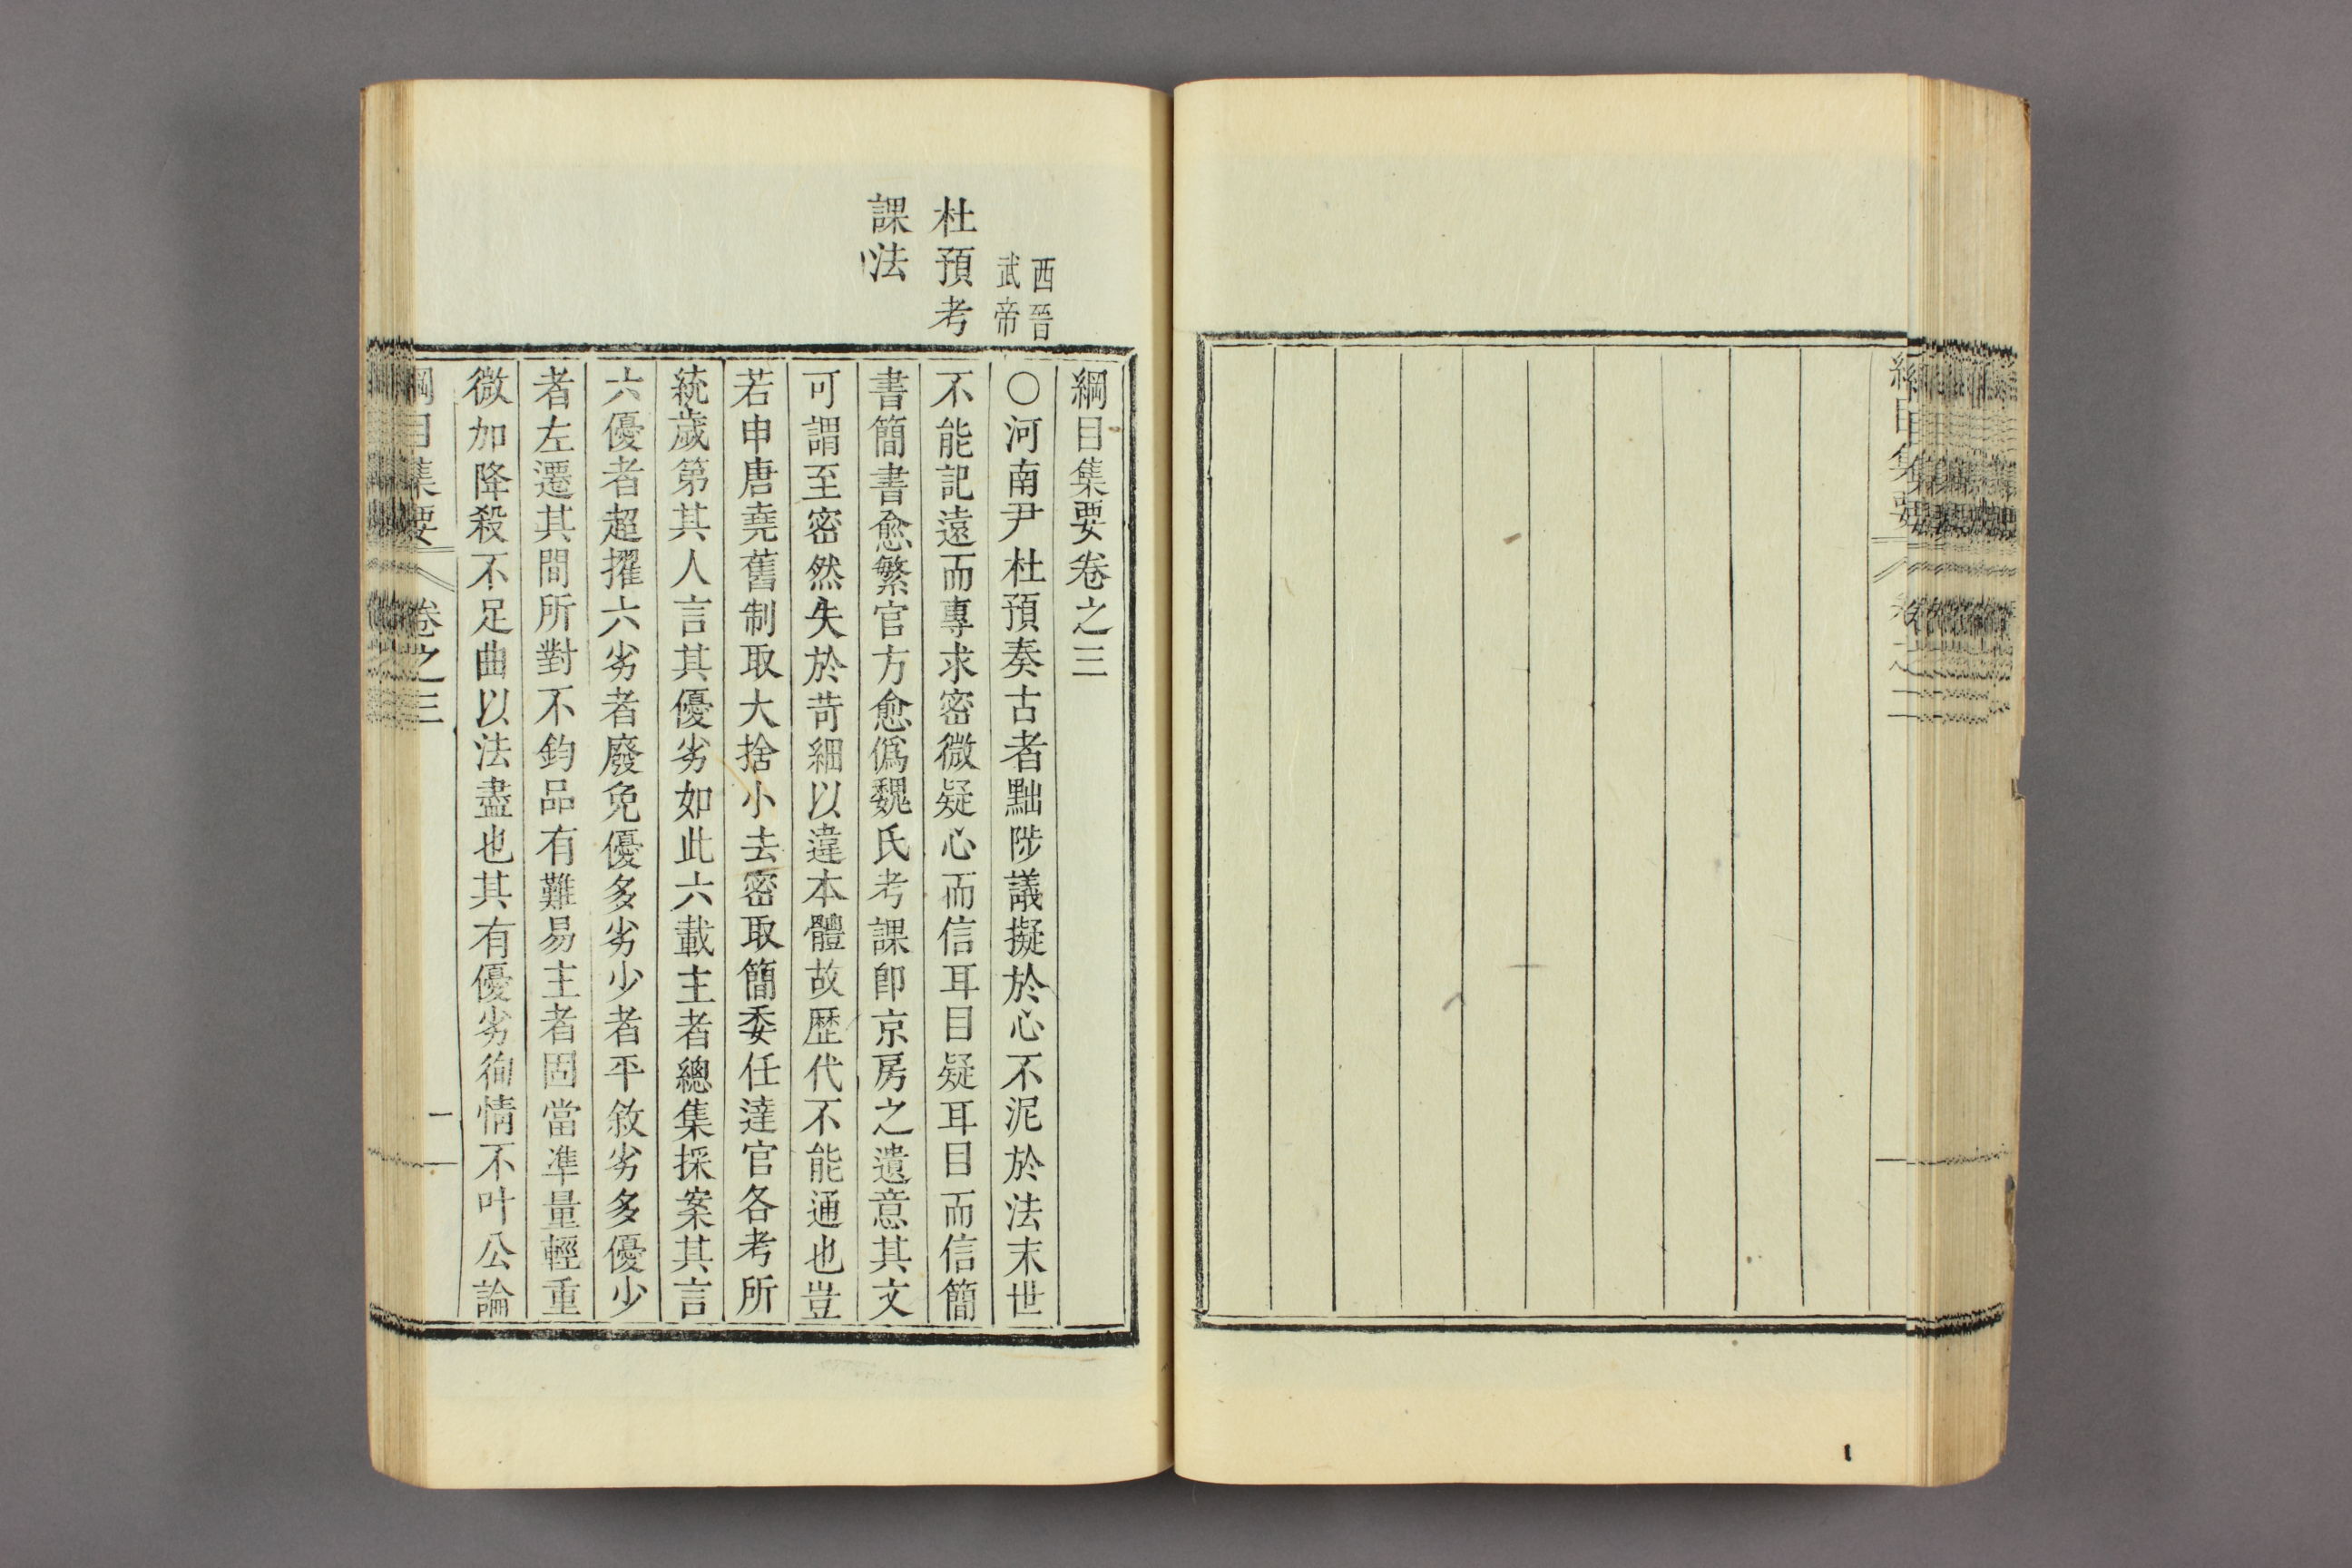 綱目集要
西晉
武帝
杜預考
課法
綱目集要卷之三
○河南尹杜預奏古者黜陟議擬於心不泥於法末世
不能記遠而專求密微疑心而信耳目疑耳目而信簡
書簡書愈繁官方愈僞魏氏考課卽京房之遺意其文
可謂至密然失於苛細以違本體故歷代不能通也豈
若申唐堯舊制取大捨小去密取簡委任達官各考所
統歲第其人言其優劣如此六載主者總集採案其言
六優者超擢六劣者廢免優多劣少者平敘劣多優少
者左遷其間所對不鈞品有難易主者固當準量輕重
微加降殺不足曲以法盡也其有優劣徇情不叶公論
綱目集要 卷之三 一